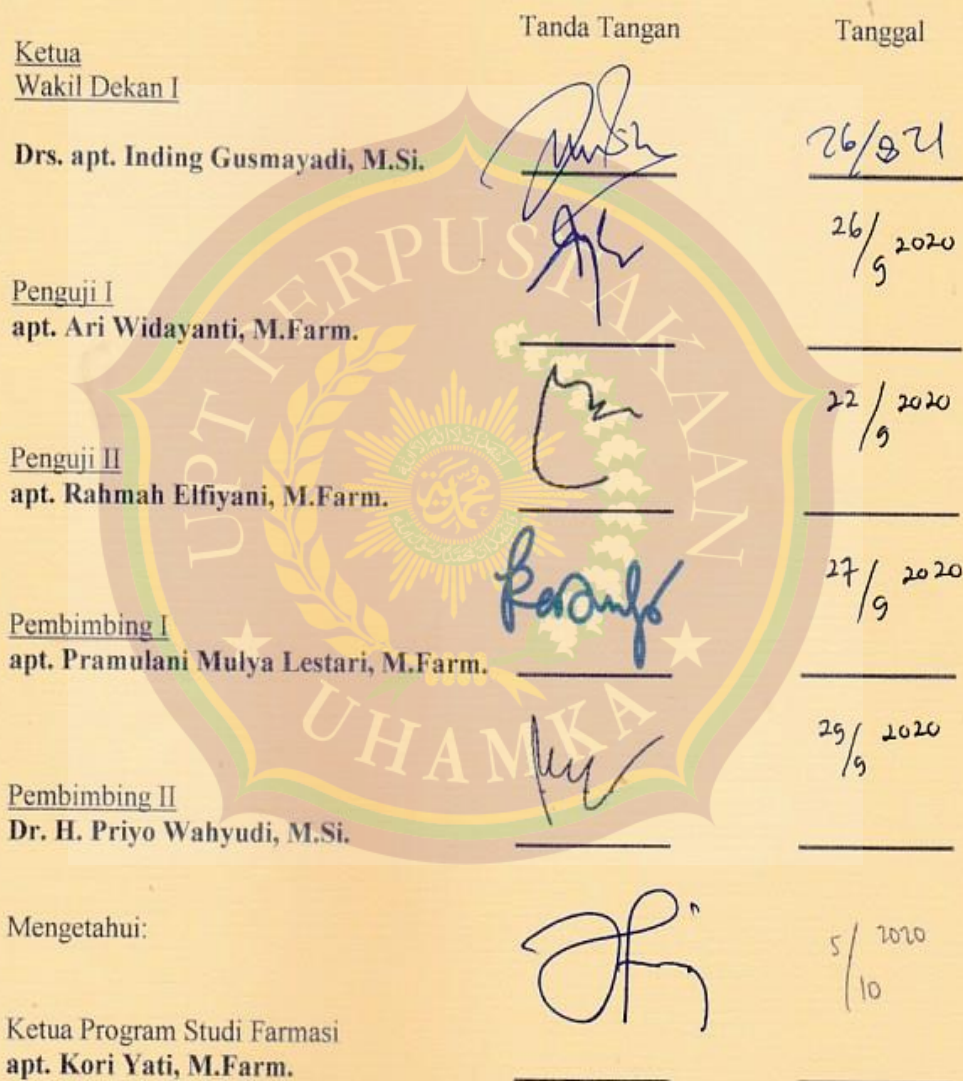 Tanda Tangan Tanggal
Ketua
Wakil Dekan I
Drs. apt. Inding Gusmayadi, M.Si. 26/8 21
26/9 2020
Penguji I
apt. Ari Widayanti, M.Farm.
22/9 2020
Penguji II
apt. Rahmah Elfiyani, M.Farm.
27/9 2020
Pembimbing I
apt. Pramulani Mulya Lestari, M.Farm.
29/9 2020
Pembimbing II
Dr. H. Priyo Wahyudi, M.Si.
Mengetahui:
5/10 2020
Ketua Program Studi Farmasi
apt. Kori Yati, M.Farm.
UPT PERPUSTAKAAN
UHAMKA